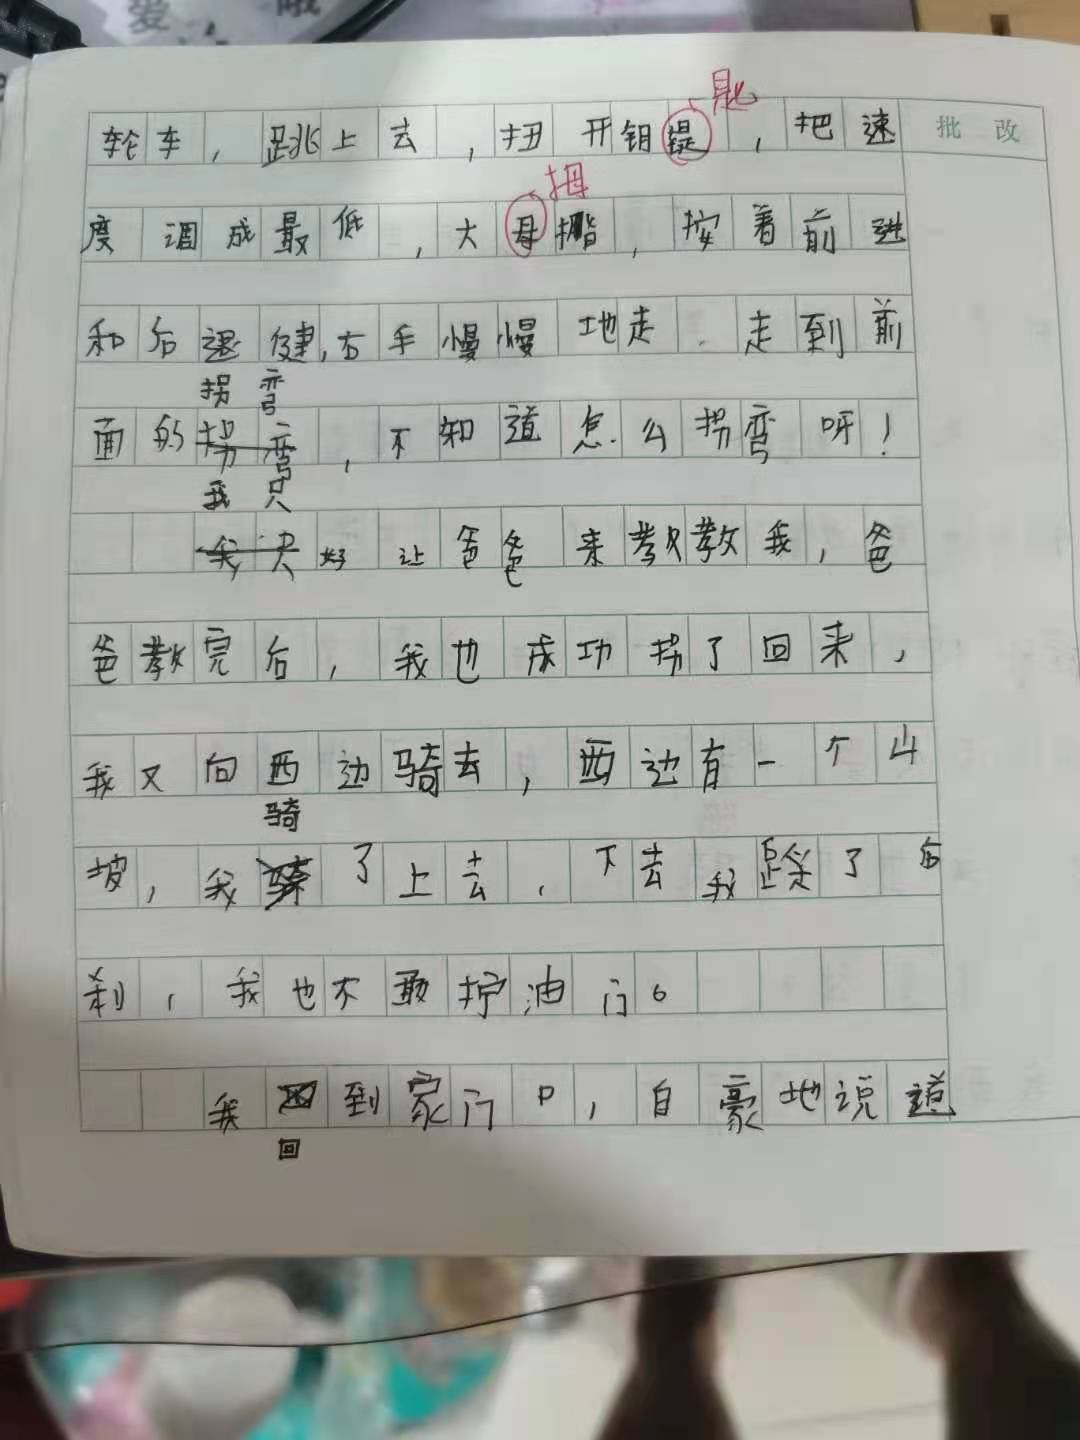 爱 哦
批 改
匙
轮车，跳上去，扭开钥提，把速
拇
度调成最低，大母指，按着前进
和后退健，右手慢慢地走．走到前
拐弯
面的拐弯，不知道怎么拐弯呀！
我只
我只好让爸爸来教教我，爸
爸教完后，我也成功拐了回来，
我又向西边骑去，西边有一个山
骑
坡，我骑了上去，下去我踩了后
刹，我也不敢拧油门。
我回到家门口，自豪地说道
回